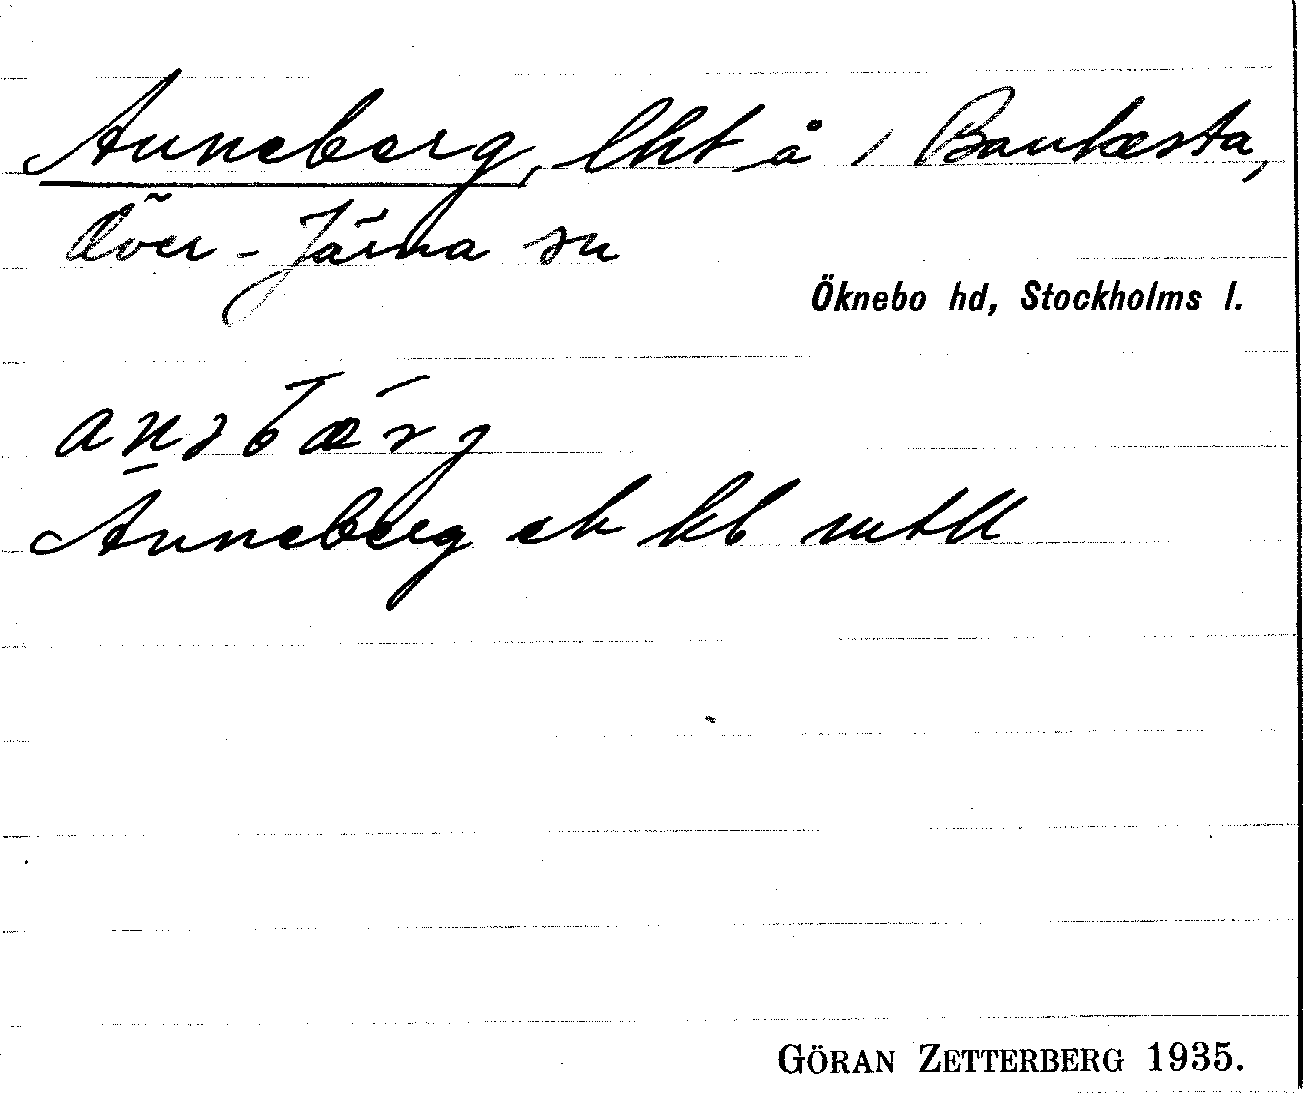 Anneberg, lht å 1 Bankesta,
Över-Järna sn
Öknebo hd, Stockholms l.
anəbærj
Anneberg ek kb mtll
GÖRAN ZETTERBERG 1935.